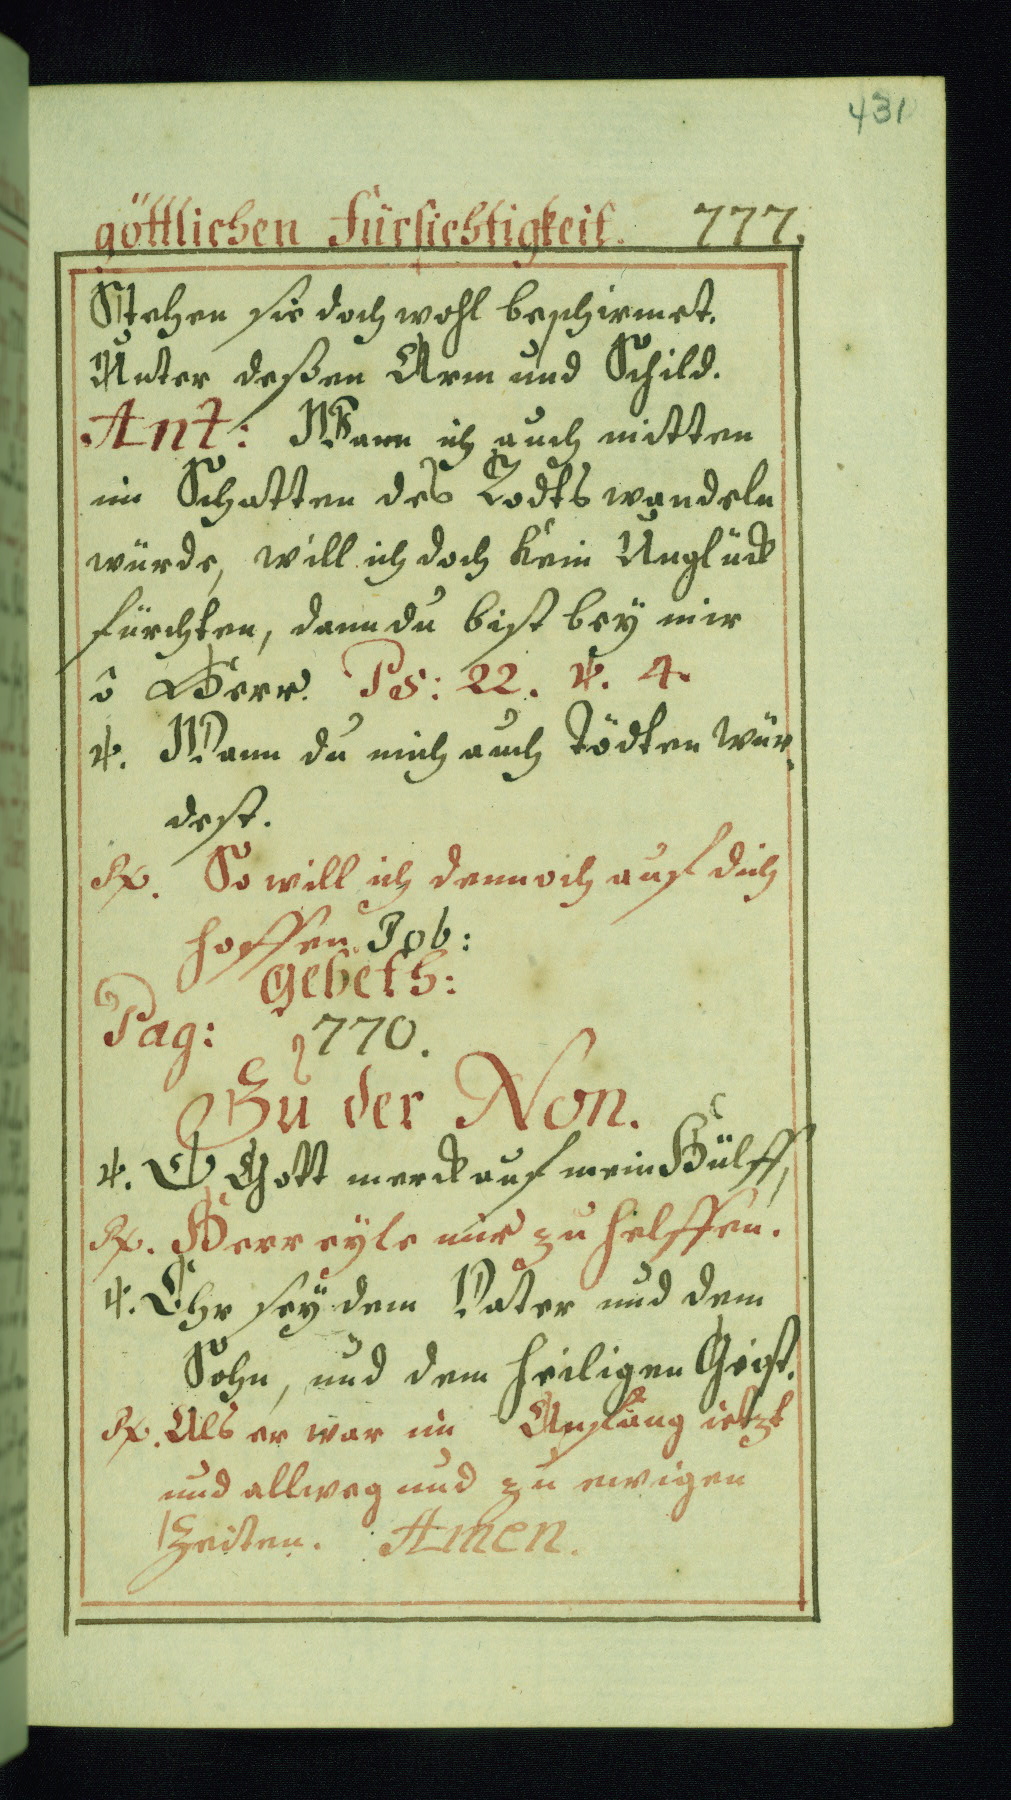 431
göttlichen Fürsichtigkeit. 777.
Stehen sie doch wohl beschirmet.
Unter deßen Arm und Schild.
Ant: Wann ich auch mitten
im Schatten des Todts wandeln
würde, will ich doch kein Unglück
fürchten, dann du bist bey mir
ô Herr. Ps: 22. ℣. 4.
℣. Wann du mich auch tödten wür-
dest.
℟. So will ich dennoch auf dich
hoffen. Job:
Gebeth:
Pag: 770.
Zu der Non.
℣. O Gott merck auf mein Hülff,
℟. Herr eyle mir zu helffen.
℣. Ehr sey dem Vater und dem
Sohn, und dem heiligen Geist.
℟. Als er war im Anfang ietzt
und allweg und zu ewigen
Zeiten. Amen.